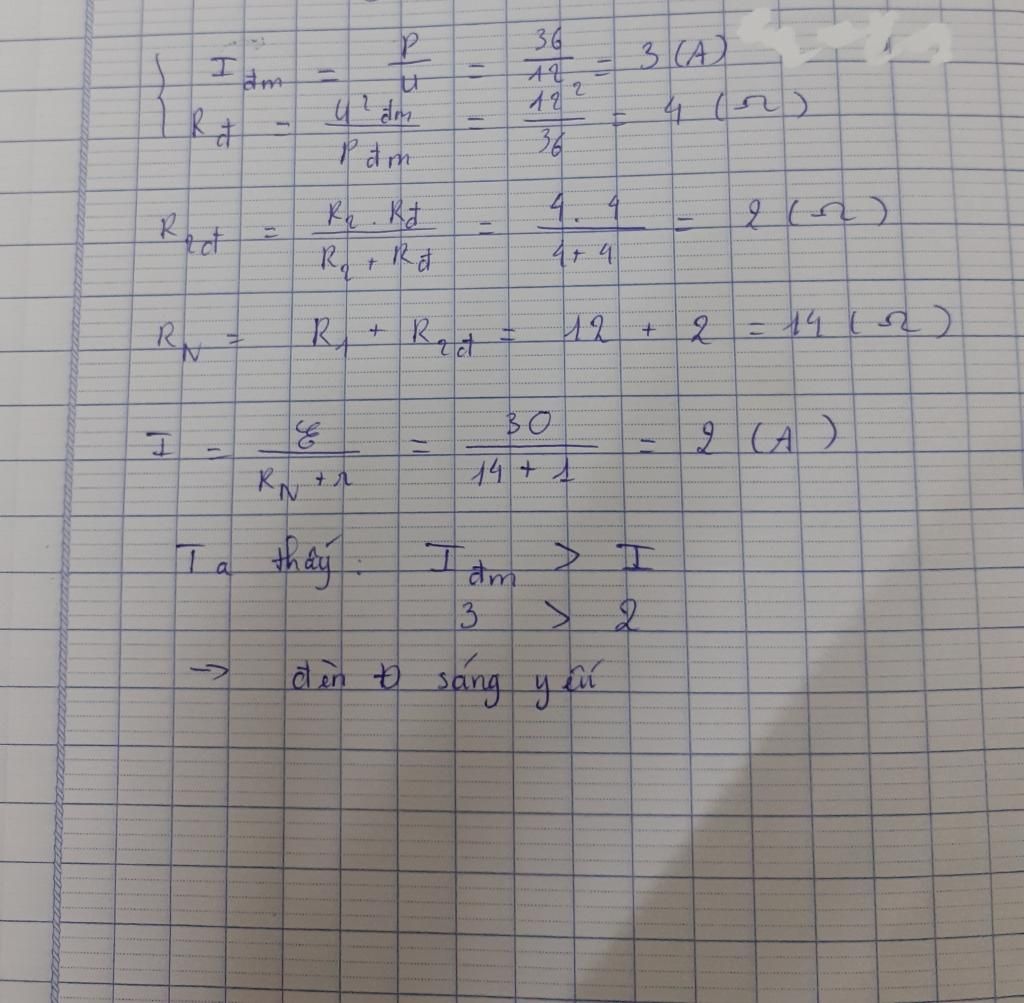 I đm = P / U = 36 / 12 = 3 (A)
R đ = U² đm / P đm = 12² / 36 = 4 (Ω)
R 2đ = R2 . Rđ / R2 + Rđ = 4 . 4 / 4 + 4 = 2 (Ω)
R N = R1 + R 2đ = 12 + 2 = 14 (Ω)
I = ℰ / R N + r = 30 / 14 + 1 = 2 (A)
Ta thấy : I đm > I
3 > 2
→ đèn Đ sáng yếu